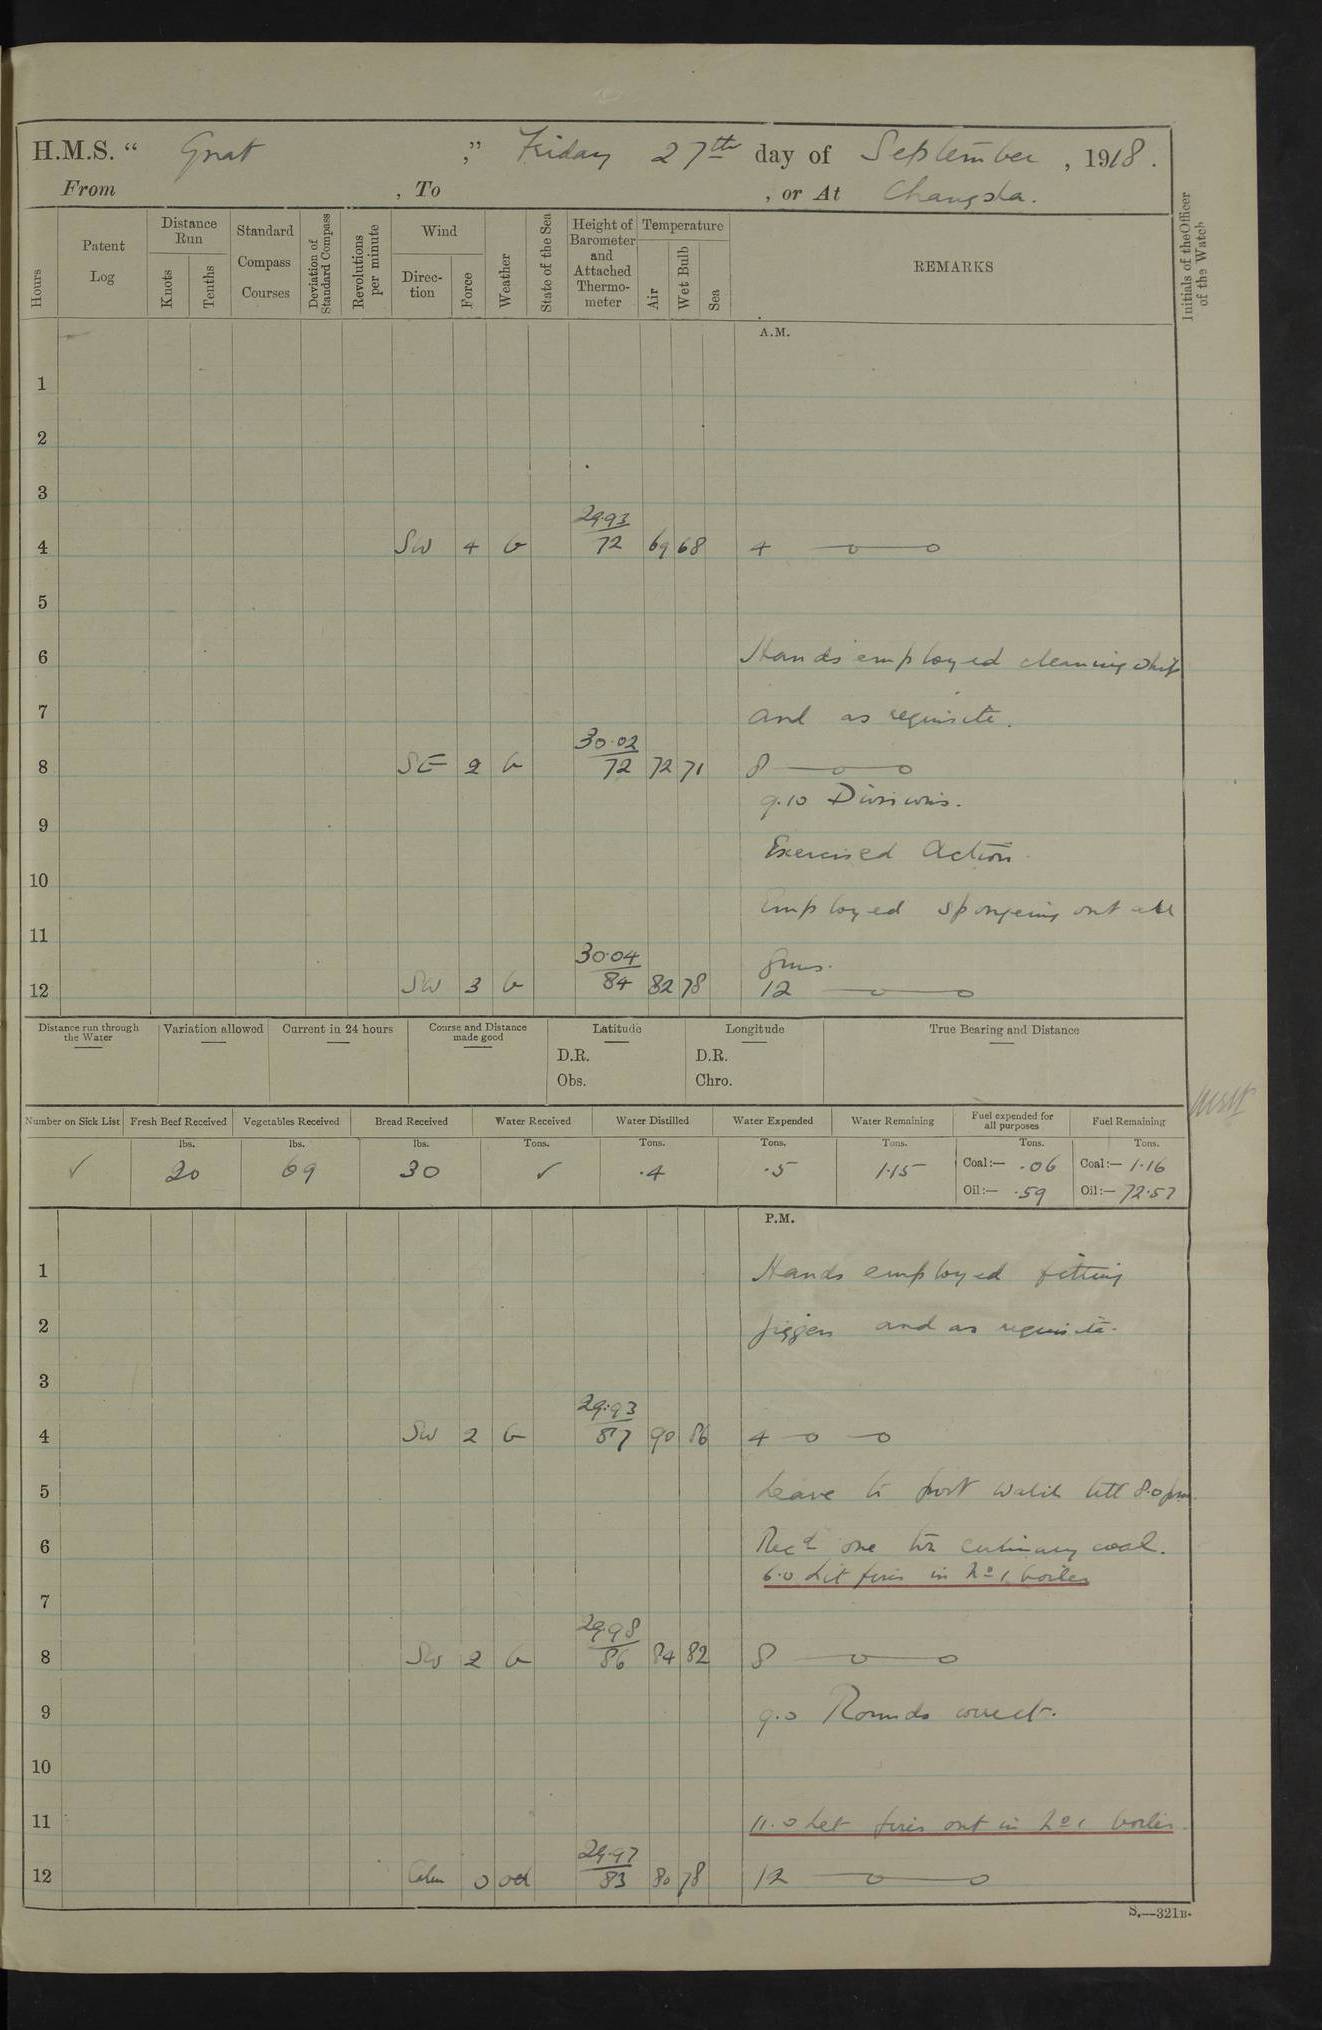 H.M.S. “ Gnat ,” Friday 27th day of September , 1918.
From , To , or At Changsha.
Hours
Patent Log
Distance Run
Knots
Tenths
Standard Compass Courses
Deviation of Standard Compass
Revolutions per minute
Wind
Direc-tion
Force
Weather
State of the Sea
Height of Barometer and Attached Thermo-meter
Temperature
Air
Wet Bulb
Sea
REMARKS
Initials of the Officer of the Watch
A.M.
1
2
3
29.93
4 SW 4 b 72 69 68 4
5
6 Hands employed cleaning ship
7 and as requisite.
30.02
8 SE 2 b 72 72 71 8
9.10 Divisions.
9
Exercised Action.
10
Employed spongeing out all
11
30.04 guns.
12 SW 3 b 84 82 78 12
Distance run through the Water
Variation allowed
Current in 24 hours
Course and Distance made good
Latitude
D.R.
Obs.
Longitude
D.R.
Chro.
True Bearing and Distance
Number on Sick List Fresh Beef Received Vegetables Received Bread Received Water Received Water Distilled Water Expended Water Remaining Fuel expended for all purposes Fuel Remaining
lbs. lbs. lbs. Tons. Tons. Tons. Tons. Tons. Tons.
✓ 20 69 30 ✓ .4 .5 1.15 Coal:— .06 Coal:— 1.16
Oil:— .59 Oil:— 72.57
P.M.
1 Hands employed fitting
2 jiggers and as requisite.
3
29.93
4 SW 2 b 87 90 86 4
5 Leave to port watch till 8.0 pm.
6 Recd one ton culinary coal.
6.0 Lit fires in No 1 boiler
7
29.98
8 SW 2 b 86 84 82 8
9 9.0 Rounds correct.
10
11 11.0 Let fires out in No 1 boiler.
29.97
12 Calm 0 od 83 80 78 12
S.—321B.